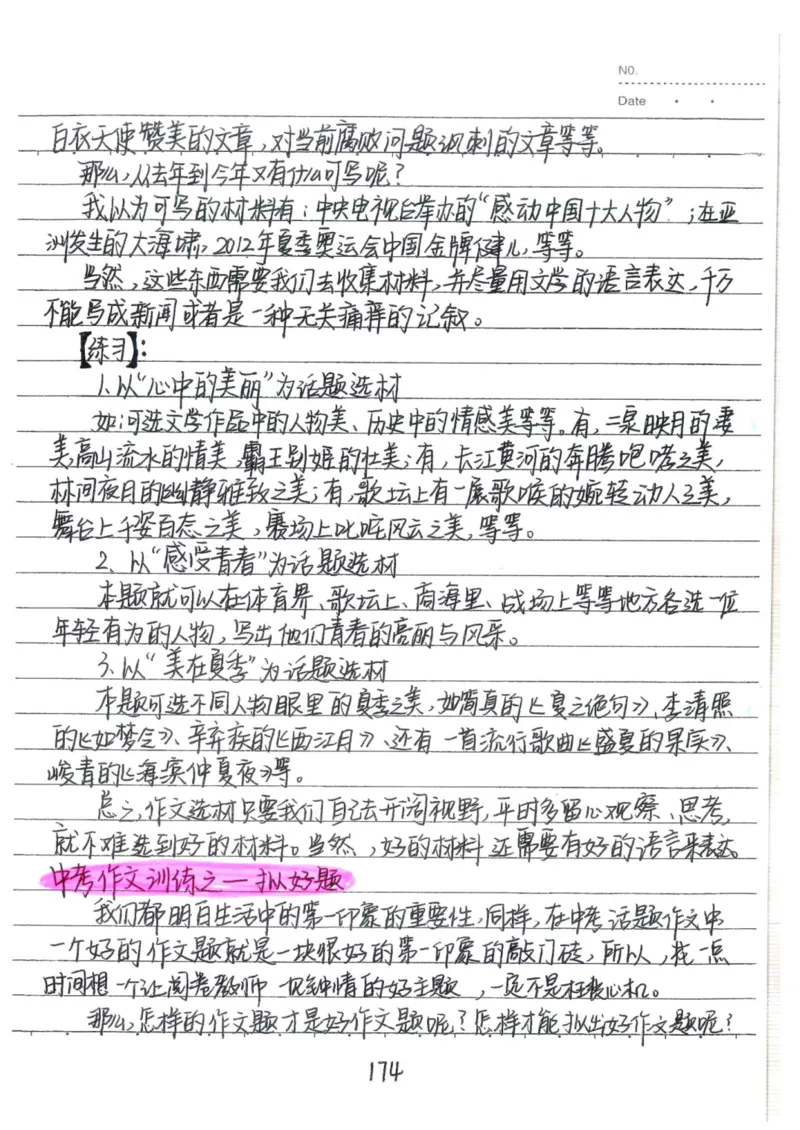 NO.
Date
白衣天使赞美的文章,对当前腐败问题讽刺的文章等等。
那么,从去年到今年又有什么可写呢?
我以为可写的材料有:中央电视台举办的“感动中国十大人物”;在亚
洲发生的大海啸,2012年夏季奥运会中国金牌健儿,等等。
当然,这些东西需要我们去收集材料,并尽量用文学的语言表达,千万
不能写成新闻或者是一种无关痛痒的记叙。
【练习】:
1.以“心中的美丽”为话题选材
如:可选文学作品中的人物美、历史中的情感美等等。有,二泉映月的凄
美,高山流水的情美,霸王别姬的壮美;有,长江黄河的奔腾咆哮之美,
林间夜月的幽静雅致之美;有,歌坛上有一展歌喉的婉转动人之美,
舞台上千姿百态之美,赛场上叱咤风云之美,等等。
2、以“感受青春”为话题选材
本题就可以在体育界、歌坛上、商海里、战场上等等地方各选一位
年轻有为的人物,写出他们青春的亮丽与风采。
3.以“美在夏季”为话题选材
本题可选不同人物眼里的夏季之美,如简真的《夏之绝句》、李清照
的《如梦令》、辛弃疾的《西江月》、还有一首流行歌曲《盛夏的果实》、
峻青的《海滨仲夏夜》等。
总之,作文选材只要我们自己去开阔视野,平时多留心观察、思考,
就不难选到好的材料。当然,好的材料还需要有好的语言来表达。
中考作文训练之一拟好题
我们都明白生活中的第一印象的重要性,同样,在中考话题作文中
一个好的作文题就是一块很好的第一印象的敲门砖,所以,花一点
时间想一个让阅卷教师一见钟情的好主题,一定不是枉费心机。
那么,怎样的作文题才是好作文题呢?怎样才能拟出好作文题呢?
174